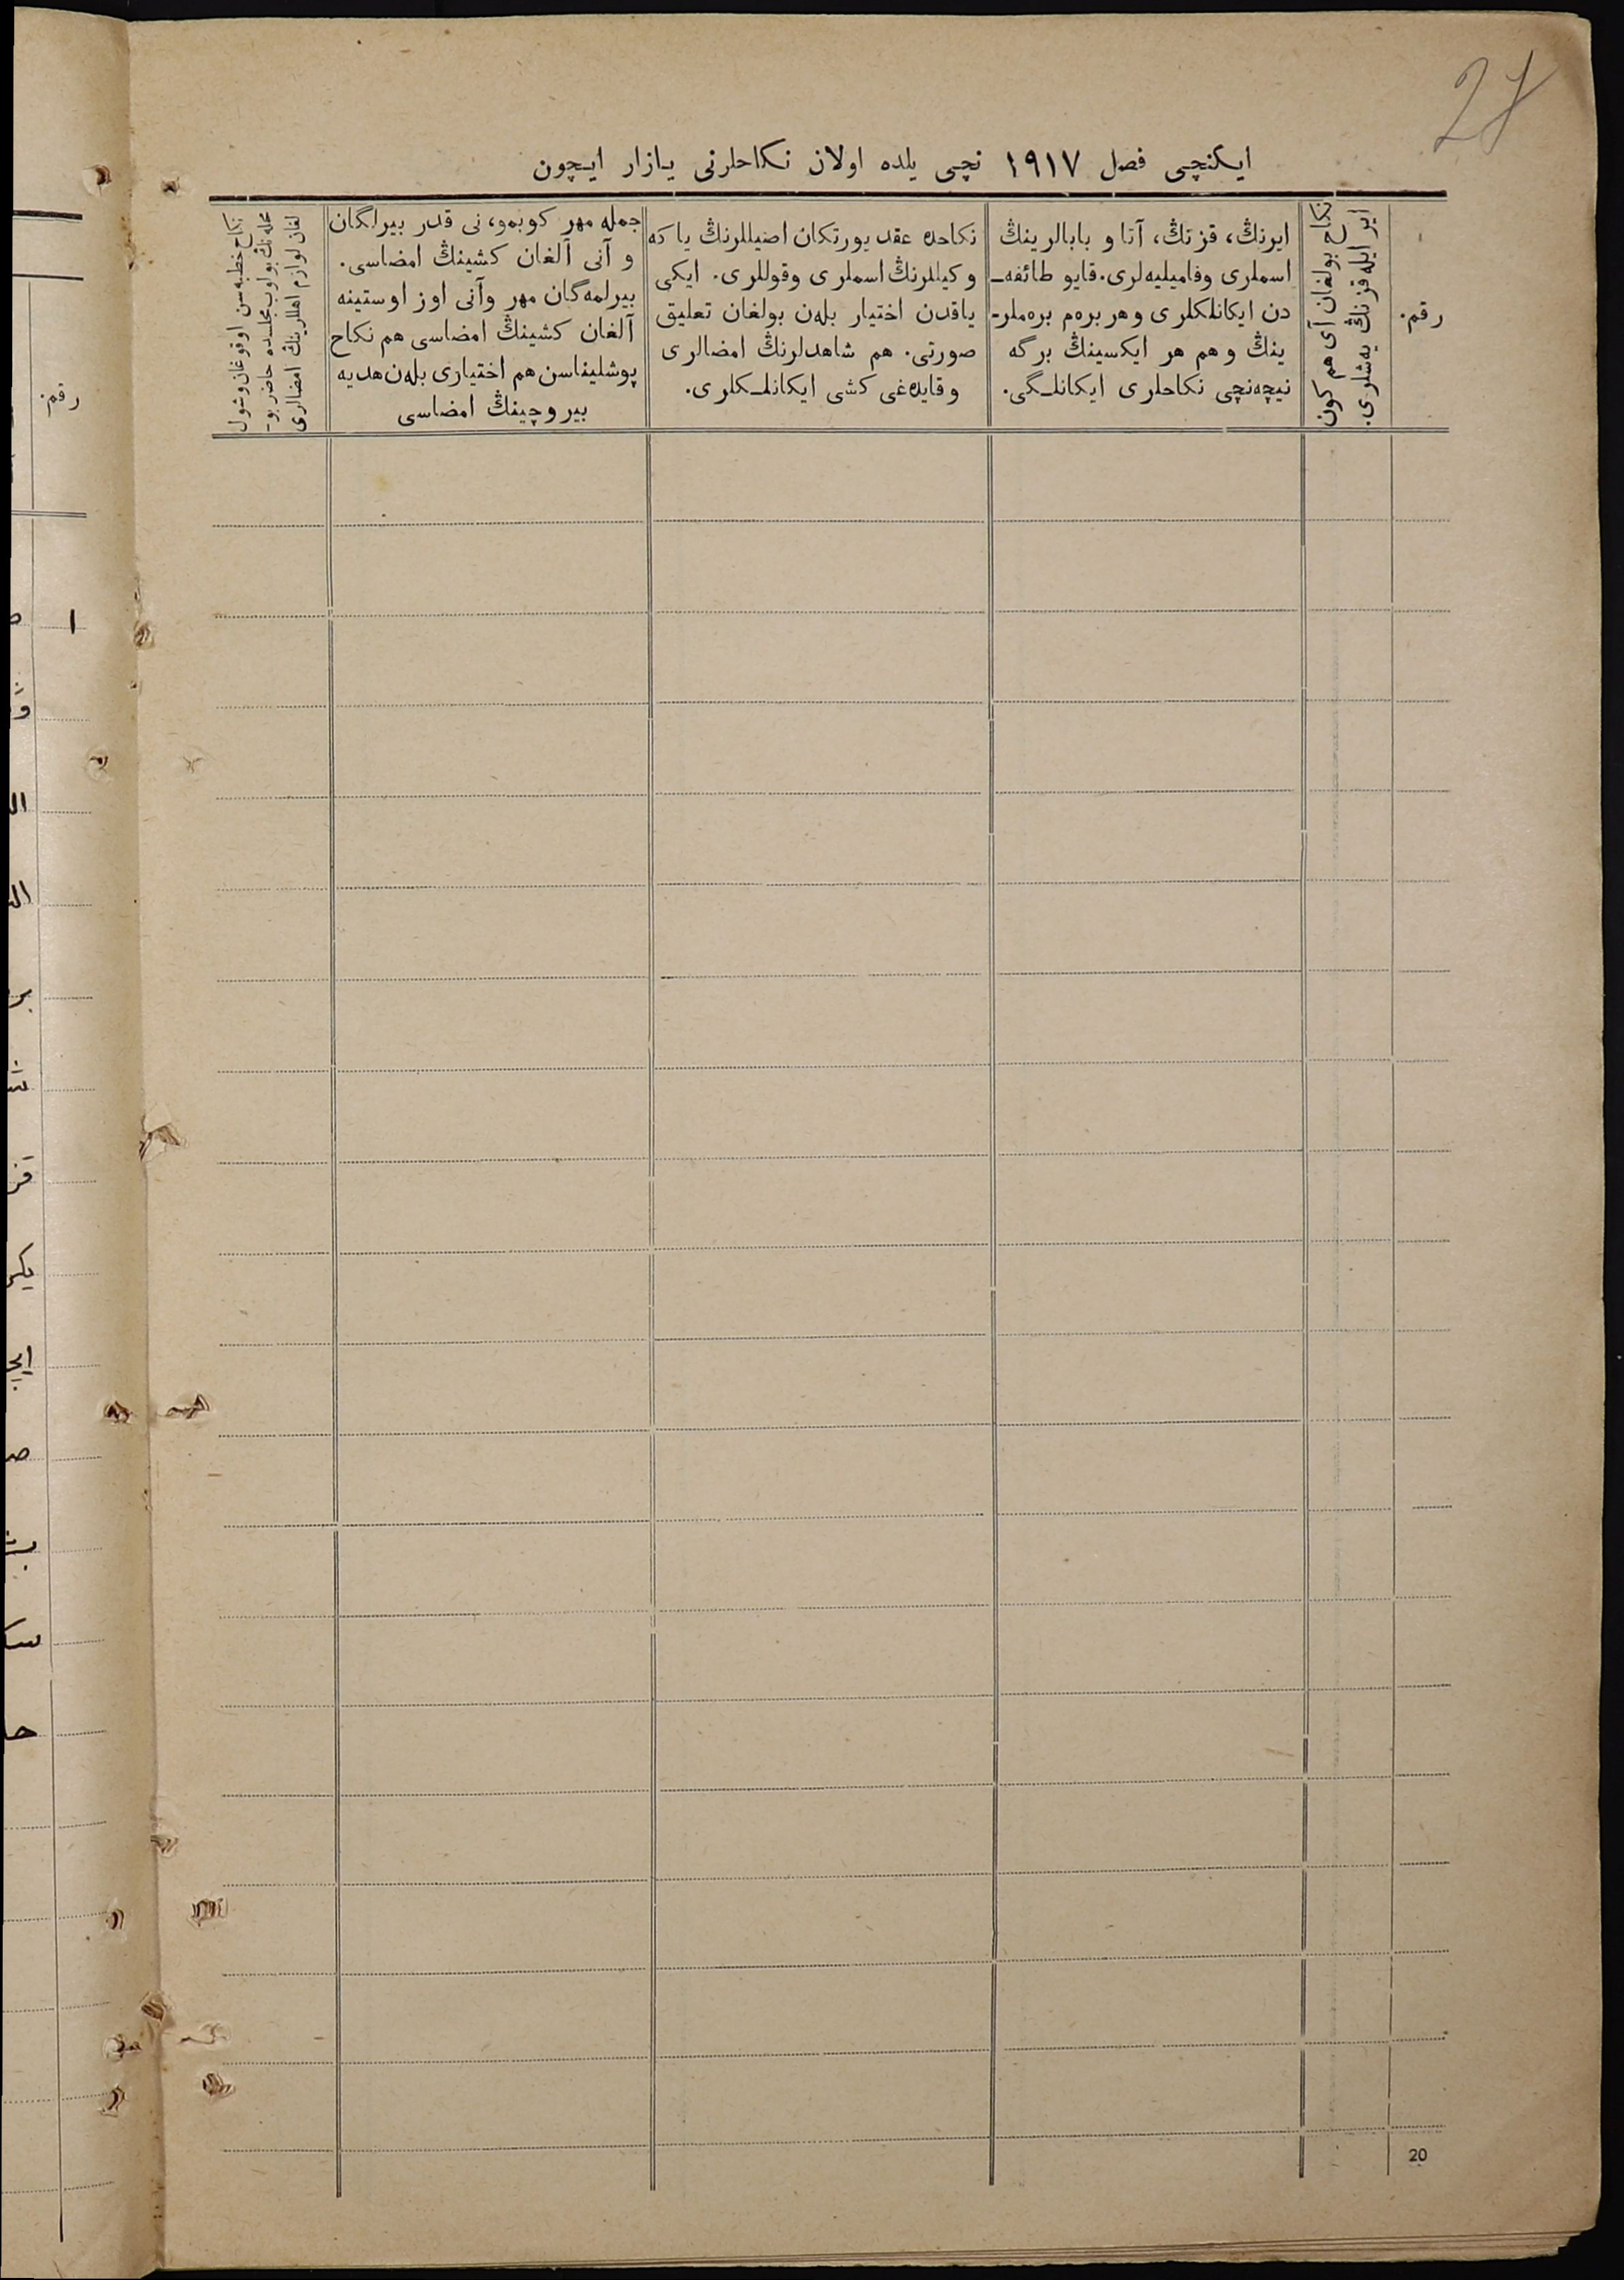 27
ایکنچی فصل ١٩١٧ نچی یلده اولان نکاحلرنی یازار ایچون
رقم.
نکاح بولغان آی هم کون
ایر ایله قزنڭ یەشلری.
ایرنڭ، قزنڭ، آتا و بابالرینڭ
اسملری وفامیلیەلری. قایو طائفه‌ـ
دن ایکانلکلری وهر برەم برەملرـ
ینڭ وهم هر ایکسینڭ برگه
نیچەنچی نکاحلری ایکانلـگی.
نکاحده عقد یورتکان اصیللرنڭ یاکه
وکیللرنڭ اسملری وقوللری. ایکی
یاقدن اختیار بلەن بولغان تعلیق
صورتی. هم شاهدلرنڭ امضالری
وقایدەغی کشی ایکانلـکلری.
جمله مهر کوبمو، نی قدر بیرلگان
و آنی آلغان کشینڭ امضاسی.
بیرلمەگان مهر وآنی اوز اوستینه
آلغان کشینڭ امضاسی هم نکاح
پوشلیناسن هم اختیاری بلەن هدیه
بیروچینڭ امضاسی
نکاح خطبەسن اوقوغان وشول
محلەنڭ بولوب مجلسده حاضر بوـ
لغان لوازم اهللرینڭ امضالری
20
رقم.
١